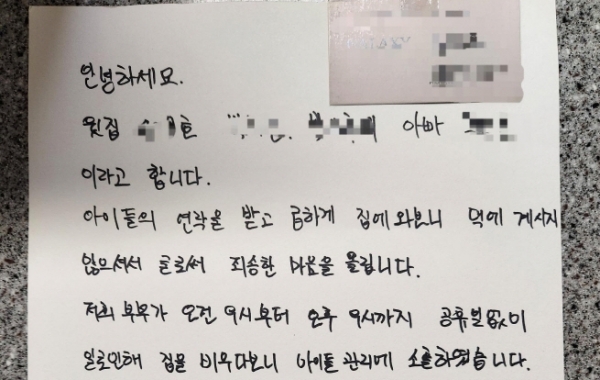 안녕하세요.
윗집 호 아빠
이라고 합니다.
아이들의 연락을 받고 급하게 집에 와보니 댁에 계시지
않으셔서 글로써 죄송한 마음을 올립니다.
저희 부부가 오전 9시부터 오후 9시까지 공휴일없이
일로인해 집을 비우다보니 아이들 관리에 소홀하였습니다.